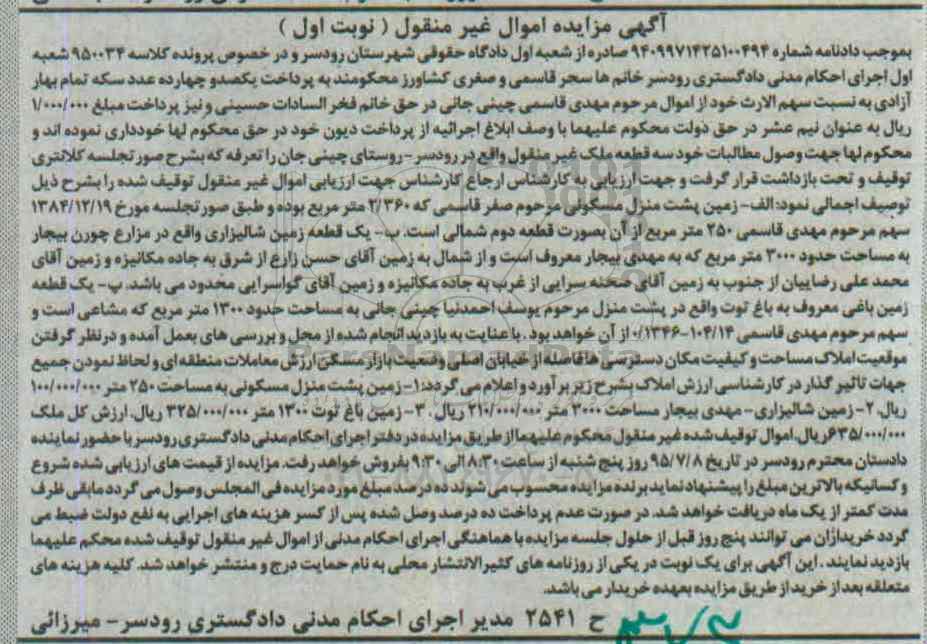 آگهی مزایده اموال غیر منقول ( نوبت اول )
بموجب دادنامه شماره ۹۴۰۹۹۷۱۴۲۵۱۰۰۴۹۴ صادره از شعبه اول دادگاه حقوقی شهرستان رودسر و در خصوص پرونده کلاسه ۹۵۰۰۳۴ شعبه
اول اجرای احکام مدنی دادگستری رودسر خانم ها سحر قاسمی و صغری کشاورز محکومند به پرداخت یکصدو چهارده عدد سکه تمام بهار
آزادی به نسبت سهم الارث خود از اموال مرحوم مهدی قاسمی چینی جانی در حق خانم فخر السادات حسینی و نیز پرداخت مبلغ ۱/۰۰۰/۰۰۰
ریال به عنوان نیم عشر در حق دولت محکوم علیهما با وصف ابلاغ اجرائیه از پرداخت دیون خود در حق محکوم لها خودداری نموده اند و
محکوم لها جهت وصول مطالبات خود سه قطعه ملک غیر منقول واقع در رودسر - روستای چینی جان را تعرفه که بشرح صورتجلسه کلانتری
توقیف و تحت بازداشت قرار گرفت و جهت ارزیابی به کارشناس ارجاع کارشناس جهت ارزیابی اموال غیر منقول توقیف شده را بشرح ذیل
توصیف اجمالی نمود: الف - زمین پشت منزل مسکونی مرحوم صفر قاسمی که ۲/۳۶۰ متر مربع بوده و طبق صورتجلسه مورخ ۱۳۸۴/۱۲/۱۹
سهم مرحوم مهدی قاسمی ۲۵۰ متر مربع از آن بصورت قطعه دوم شمالی است. ب- یک قطعه زمین شالیزاری واقع در مزارع چورن بیجار
به مساحت حدود ۳۰۰۰ متر مربع که به مهدی بیجار معروف است و از شمال به زمین آقای حسن زارع از شرق به جاده مکانیزه و زمین آقای
محمد علی رضاییان از جنوب به زمین آقای صحنه سرایی از غرب به جاده مکانیزه و زمین آقای گواسرایی محدود می باشد. پ- یک قطعه
زمین باغی معروف به باغ توت واقع در پشت منزل مرحوم یوسف احمدنیا چینی جانی به مساحت حدود ۱۳۰۰ متر مربع که مشاعی است و
سهم مرحوم مهدی قاسمی ۱۰۴/۱۴-۰/۱۳۴۶ از آن خواهد بود. با عنایت به بازدید انجام شده از محل و بررسی های بعمل آمده و درنظر گرفتن
موقعیت املاک مساحت و کیفیت مکان دسترسی ها فاصله از خیابان اصلی وضعیت بازار مسکن ارزش معاملات منطقه ای و لحاظ نمودن جمیع
جهات تاثیر گذار در کارشناسی ارزش املاک بشرح زیر برآورد و اعلام می گردد: ۱- زمین پشت منزل مسکونی به مساحت ۲۵۰ متر ۱۰۰/۰۰۰/۰۰۰
ریال. ۲- زمین شالیزاری - مهدی بیجار مساحت ۳۰۰۰ متر ۲۱۰/۰۰۰/۰۰۰ ریال . ۳- زمین باغ توت ۱۳۰۰ متر ۳۲۵/۰۰۰/۰۰۰ ریال. ارزش کل ملک
۶۳۵/۰۰۰/۰۰۰ ریال. اموال توقیف شده غیر منقول محکوم علیهما از طریق مزایده در دفتر اجرای احکام مدنی دادگستری رودسر با حضور نماینده
دادستان محترم رودسر در تاریخ ۹۵/۷/۸ روز پنج شنبه از ساعت ۸:۳۰ الی ۹:۳۰ بفروش خواهد رفت. مزایده از قیمت های ارزیابی شده شروع
و کسانیکه بالاترین مبلغ را پیشنهاد نماید برنده مزایده محسوب می شوند ده درصد مبلغ مورد مزایده فی المجلس وصول می گردد مابقی ظرف
مدت کمتر از یک ماه دریافت خواهد شد. در صورت عدم پرداخت ده درصد وصل شده پس از کسر هزینه های اجرایی به نفع دولت ضبط می
گردد خریداران می توانند پنج روز قبل از حلول جلسه مزایده با هماهنگی اجرای احکام مدنی از اموال غیر منقول توقیف شده محکم علیهما
بازدید نمایند . این آگهی برای یک نوبت در یکی از روزنامه های کثیرالانتشار محلی به نام حمایت درج و منتشر خواهد شد. کلیه هزینه های
متعلقه بعد از خرید از طریق مزایده بعهده خریدار می باشد.
ح ۲۵۴۱ مدیر اجرای احکام مدنی دادگستری رودسر - میرزائی